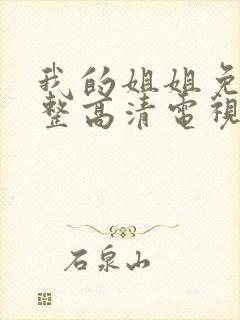 我的姐姐免
整高清電視
石泉山